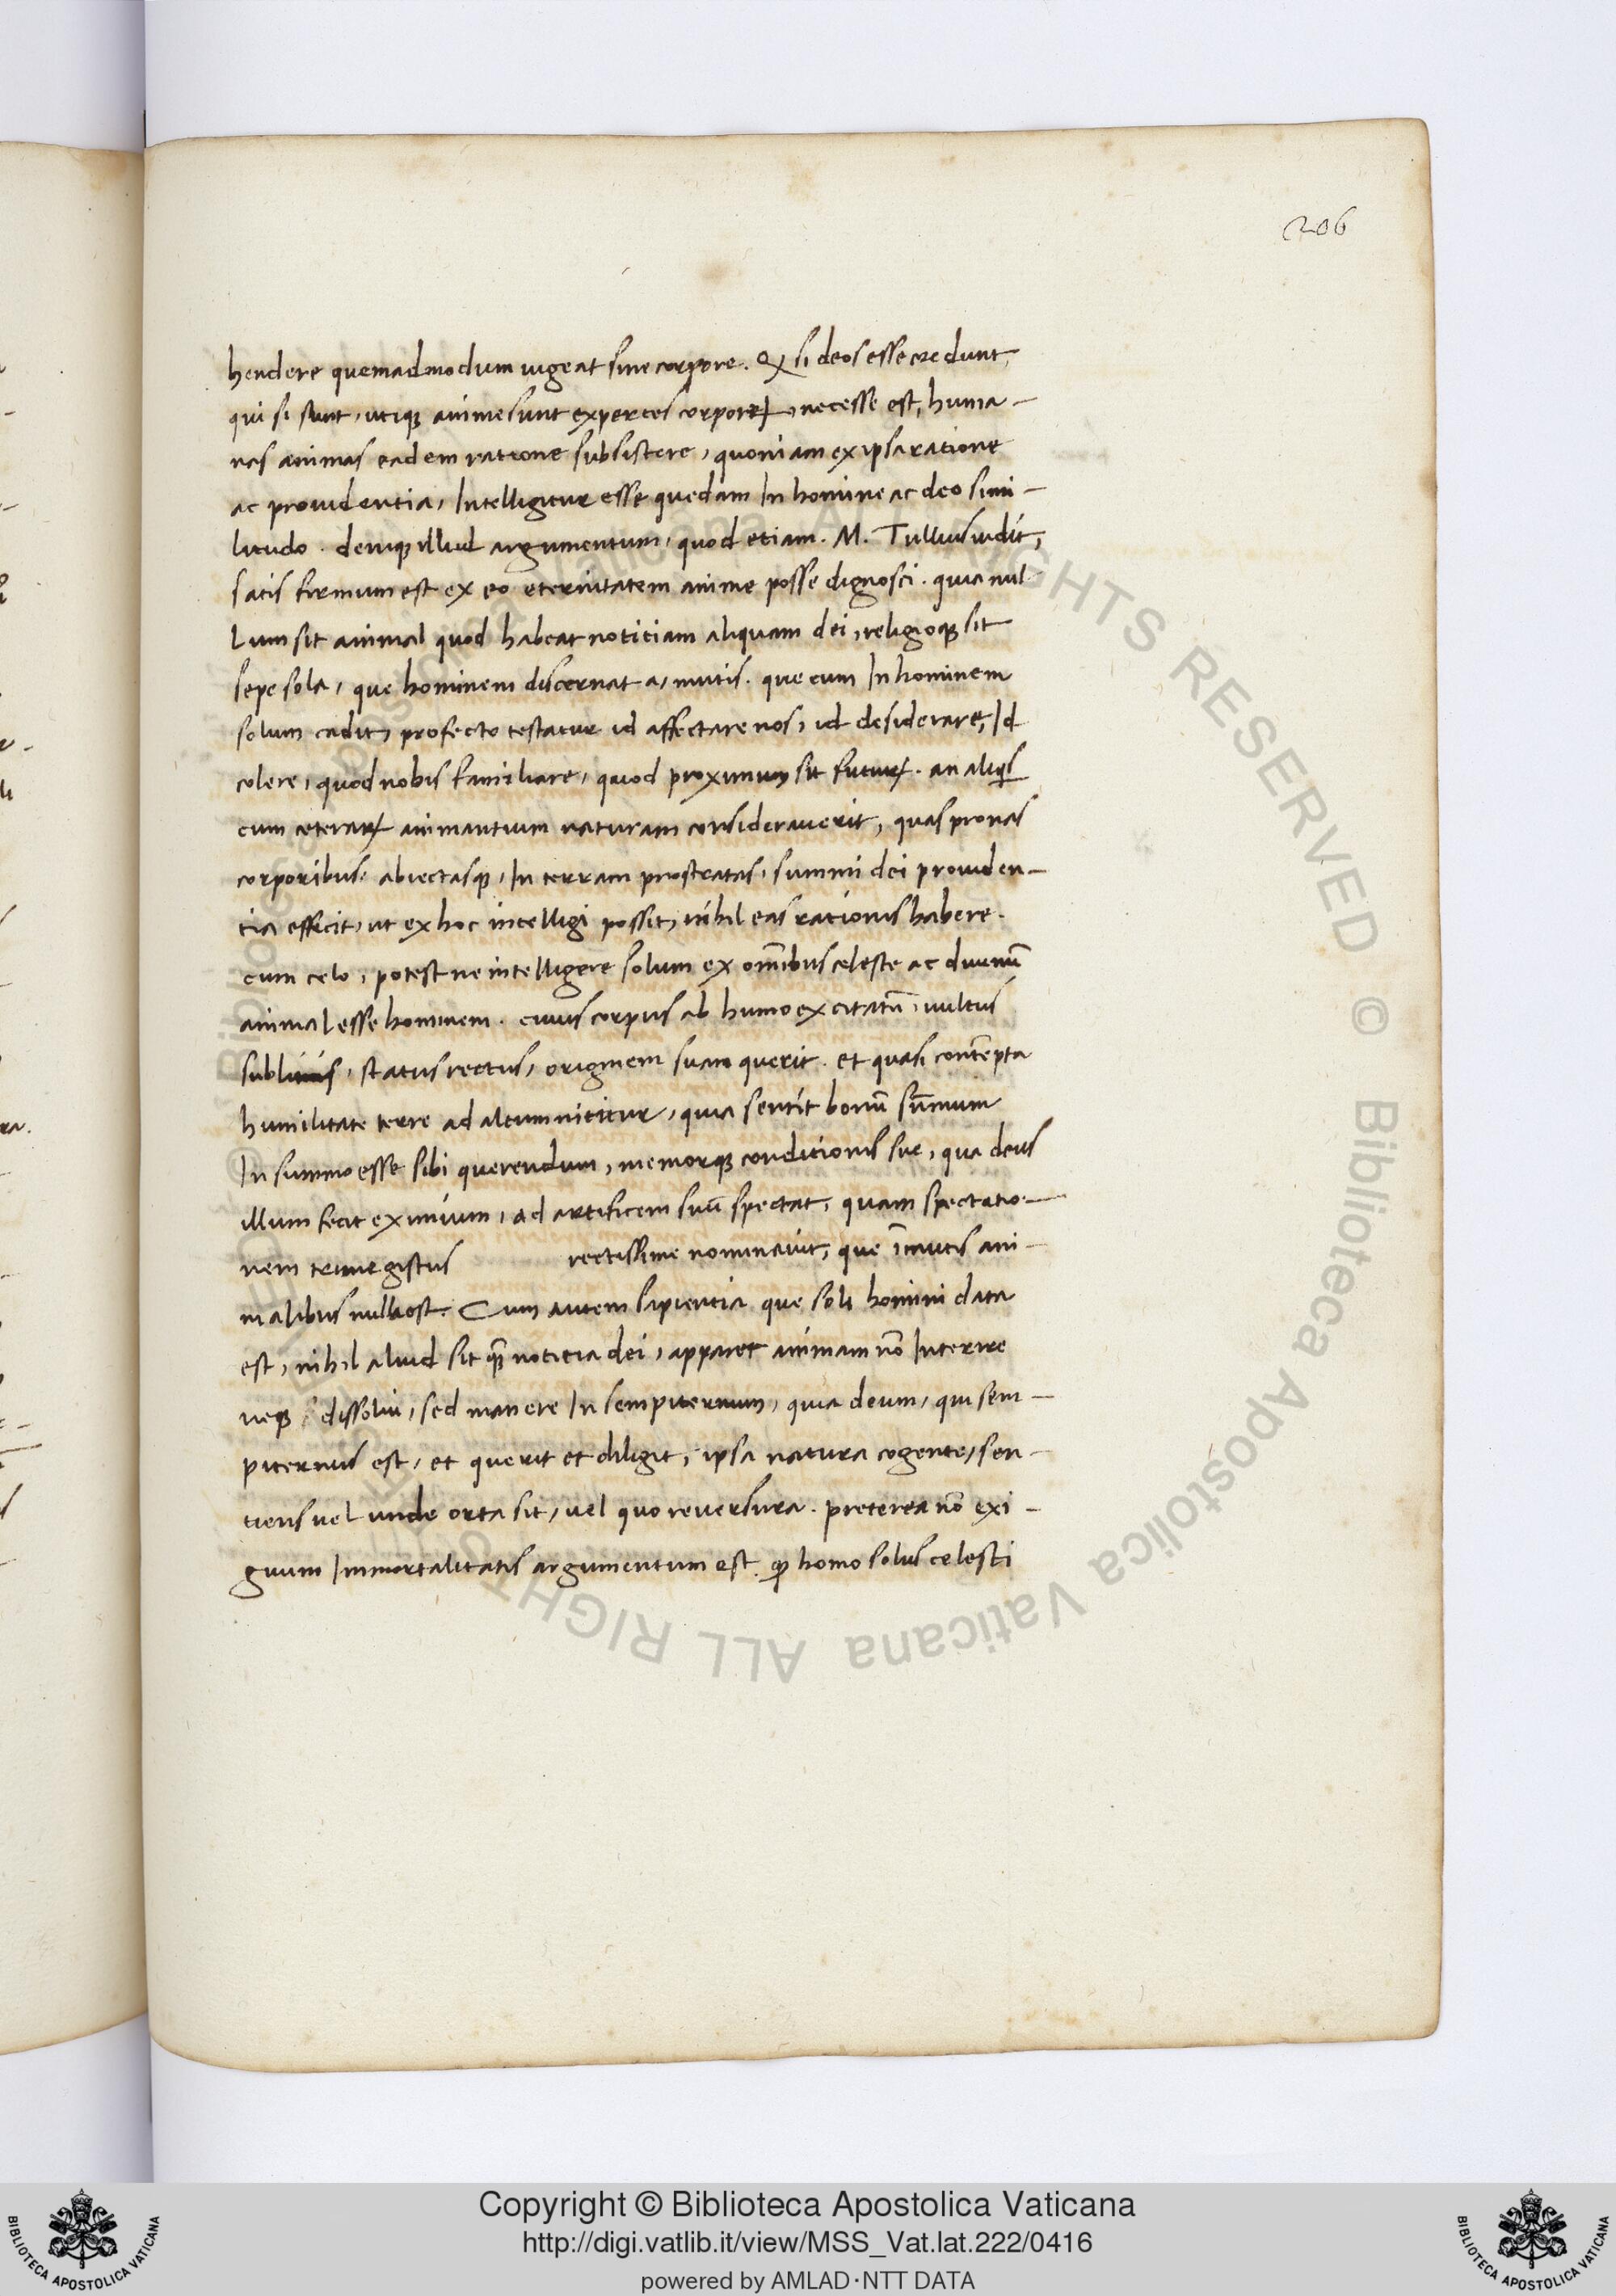 206
hendere quemadmodum uigeat sine corpore. Qꝫ si deos esse credunt,
qui si sunt, utiqꝫ anime sunt expertes corporeꝝ, necesse est, huma-
nas animas eadem ratione subsistere, quoniam ex ipsa ratione
ac prouidentia, Intelligitur esse quedam In homine ac deo simi-
litudo. deniqꝫ illud argumentum, quod etiam. M. Tullius uidit,
satis firmum est ex eo eternitatem anime posse dignosci. quia nul
lum sit animal quod habeat noticiam aliquam dei, religioqꝫ sit
sepe sola, que hominem discernat a, mutis. que cum In hominem
solum cadit, profecto testatur id affectare nos, id desiderare, Id
colere, quod nobis familiare, quod proximum sit futuꝝ. an aliqis
cum ceteraꝝ animantium naturam considerauerit, quas pronas
corporibus. abiectasqꝫ, In terram prostratas, summi dei prouiden-
tia effecit, ut ex hoc intelligi possit, nihil eas rationis habere.
cum celo, potest ne intelligere solum ex om̅ibus celeste ac diuinu̅
animal esse hominem. cuius corpus ab humo excitatu̅, uultus
sublimis, status rectus, originem suam querit. et quasi conte̅pta
humilitate terre ad altum nititur, quia sentit bonu̅ su̅mum
In summo esse sibi querendum, memorqꝫ conditionis sue, qua deus
illum fecit eximium, ad artificem suu̅ spectat, quam spectatio-
nem trimegistus rectissime nominauit, que i̅ mutis ani-
malibus nulla est. Cum autem sapientia que soli homini data
est, nihil aliud sit qꝫ̅ noticia dei, apparet animam no̅ Interire
neqꝫ dissolui, sed manere In sempiternum, quia deum, qui sem-
piternus est, et querit et diligit, ipsa natura cogente, sen-
tiens uel unde orta sit, uel quo reuersura. preterea no̅ exi-
guum Immortalitatis argumentum est. ꝙ homo solus celesti
Copyright © Biblioteca Apostolica Vaticana
http://digi.vatlib.it/view/MSS_Vat.lat.222/0416
powered by AMLAD·NTT DATA